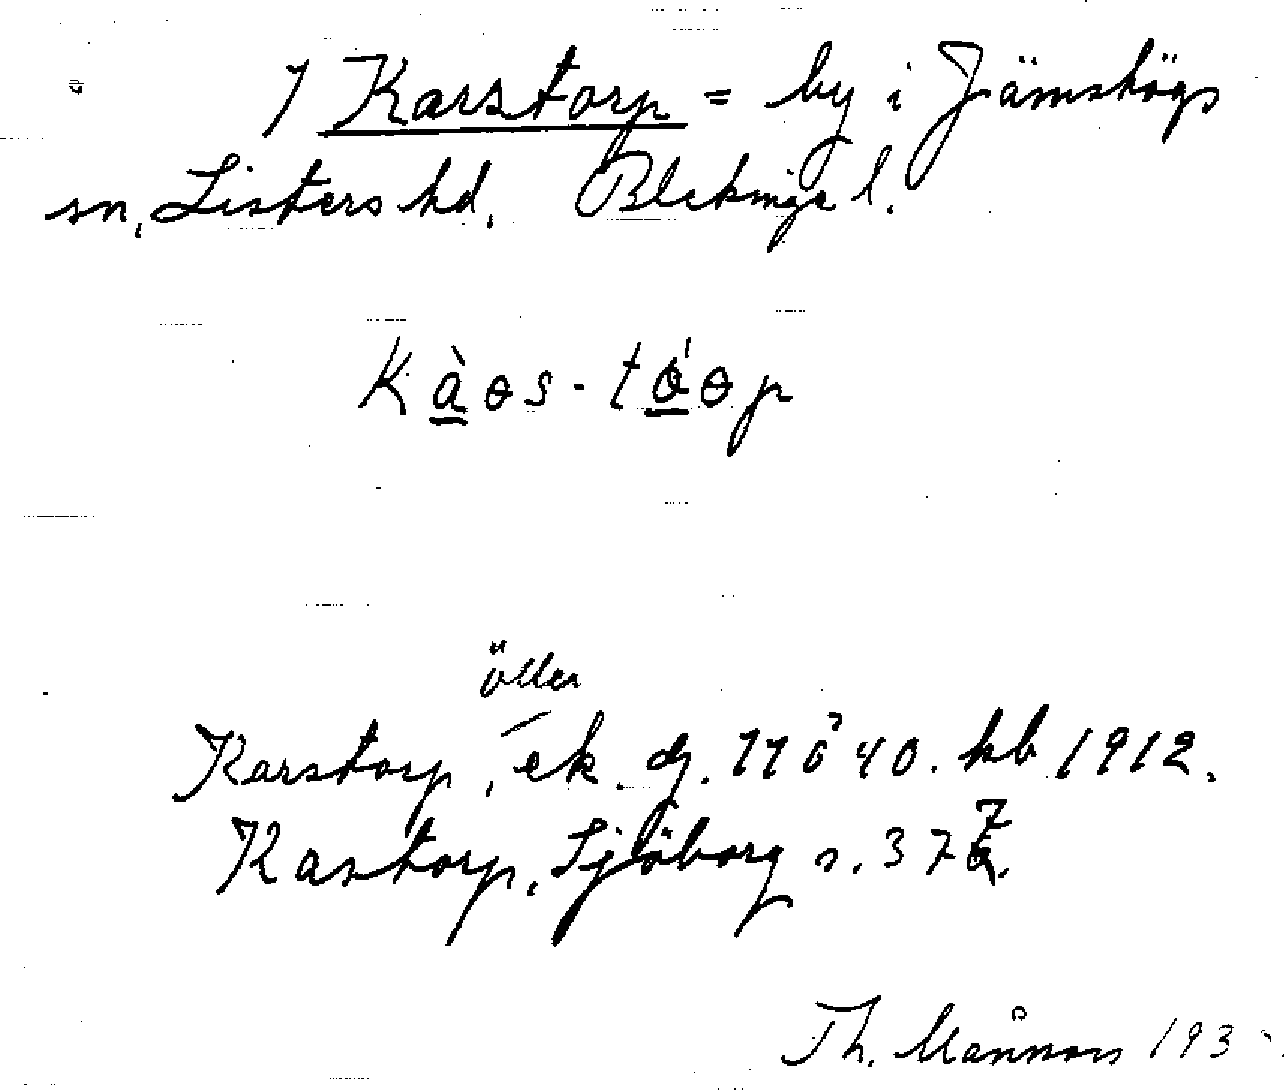 1 Karstorp = by i Jämshögs
sn, Listers hd. Blekinge l.
Kàɵs-tóɵp
öller
Karstorp, ek. dj. 11 ö 40. kb 1912.
Kastorp, Sjöborg s. 377.
Th. Månnors 193